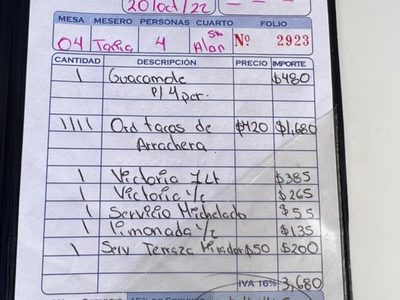 20/oct/22
MESA MESERO PERSONAS CUARTO FOLIO
04 Tania 4 Alan Nº 2923
CANTIDAD DESCRIPCIÓN PRECIO IMPORTE
1 Guacamole $480
p/ 4 per.
1111 Ord tacos de $420 $1,680
Arrachera
1 Victoria 1Lt $385
1 Victoria 1/2 $265
1 Servicio Michelado $55
1 limonada 1/2 $135
1 Serv Terraza Mirador $50 $200
IVA 16% 3,680